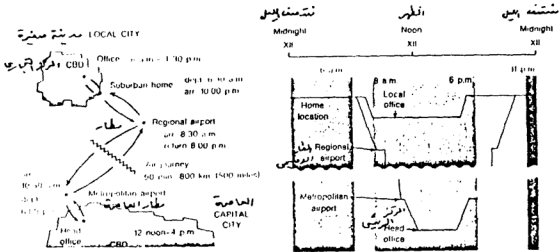 مدينة صغيرة LOCAL CITY
CBD المركز التجاري
Office
4:30 p.m
Suburban home
dept 6:30 a.m
arr 10:00 p.m
مطار
Regional airport
arr 8:30 a.m
return 8:00 p.m
Air journey
90 min 800 km (500 miles)
Metropolitan airport
مطار العاصمة
العاصمة
CAPITAL
CITY
Head
office
12 noon-4 p.m
CBD
منتصف الليل
الظهر
منتصف الليل
Midnight
Noon
Midnight
XII
XII
XII
8 a.m
6 p.m
Home
location
Local
office
Regional
airport
Metropolitan
airport
Head
office